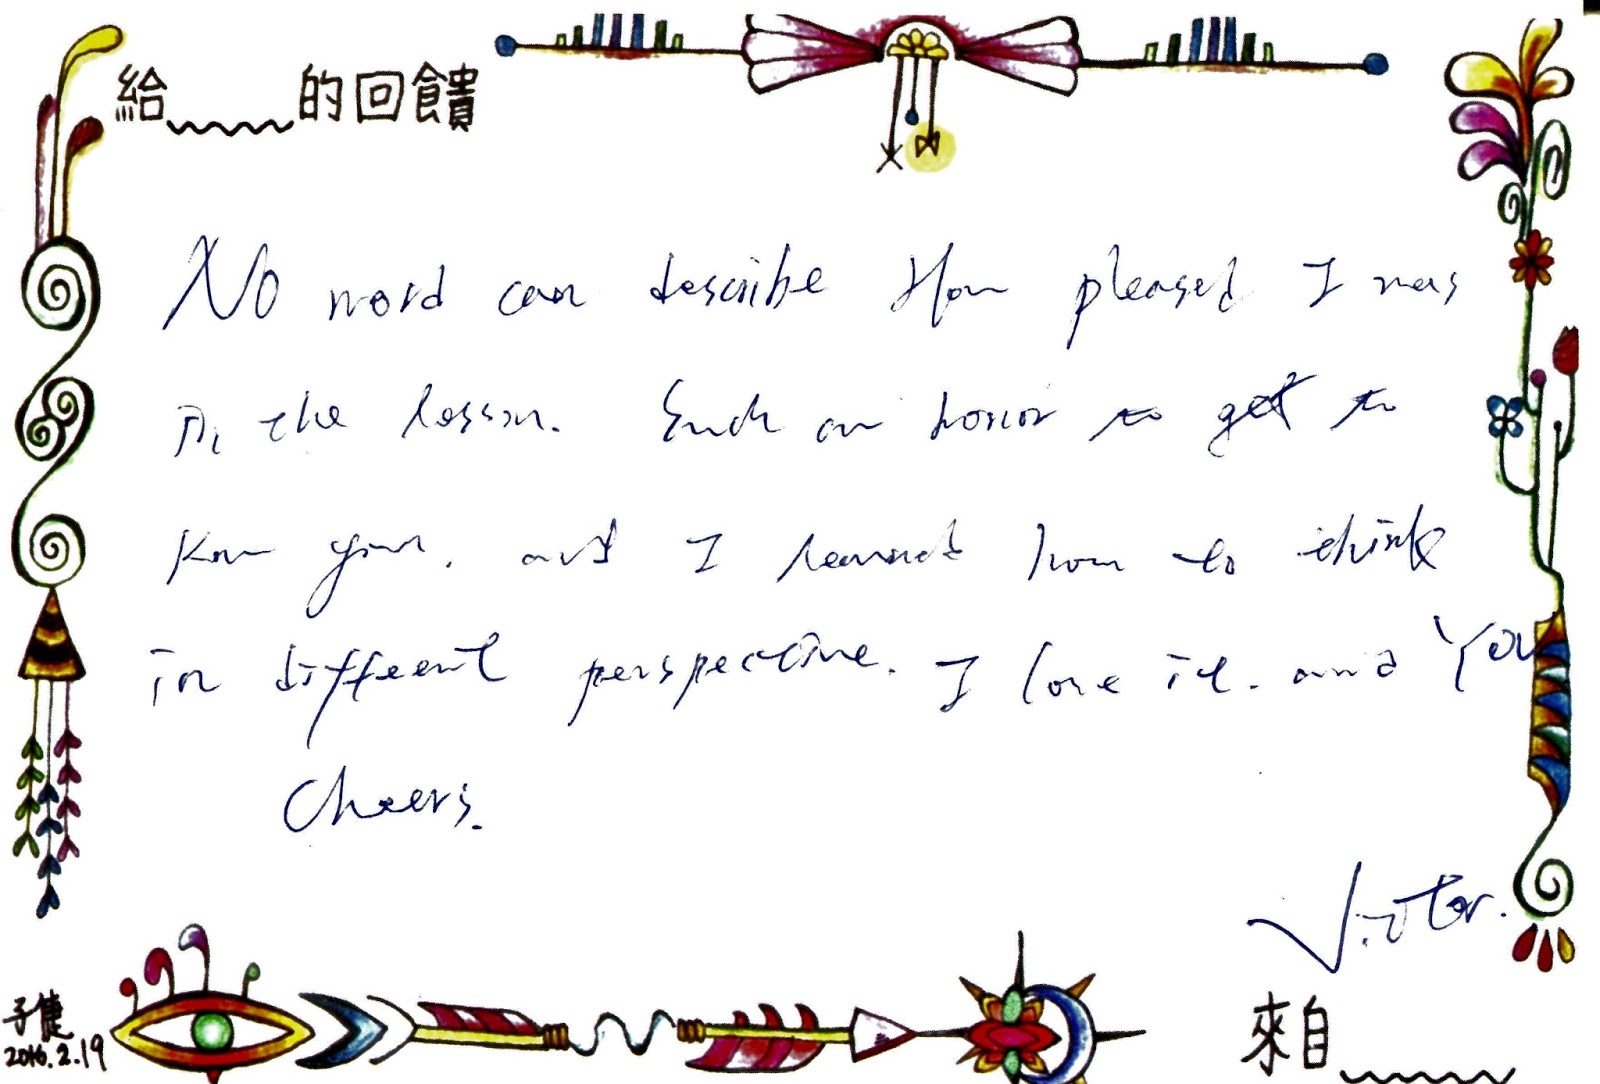 給 的回饋
No word can describe How pleased I was
in the lesson. Such an honor to get to
know you, and I learned how to think
in different perspective. I love it. and You
Cheers.
Victor.
子倢
2016.2.19
來自